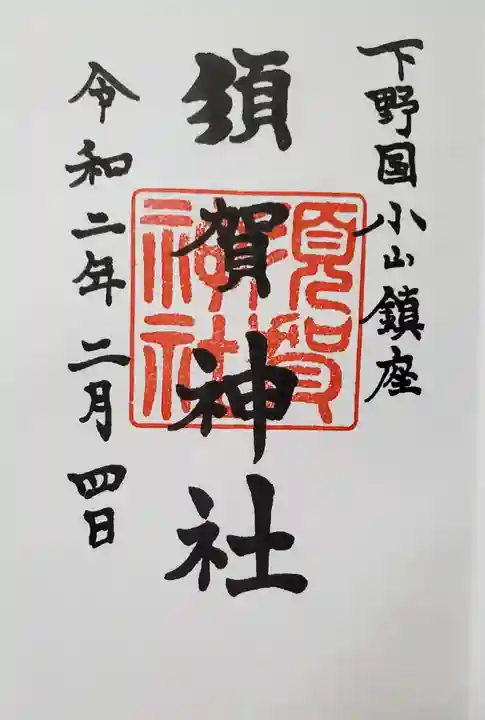 下野国小山鎮座
須賀神社
須賀神社
令和二年二月四日